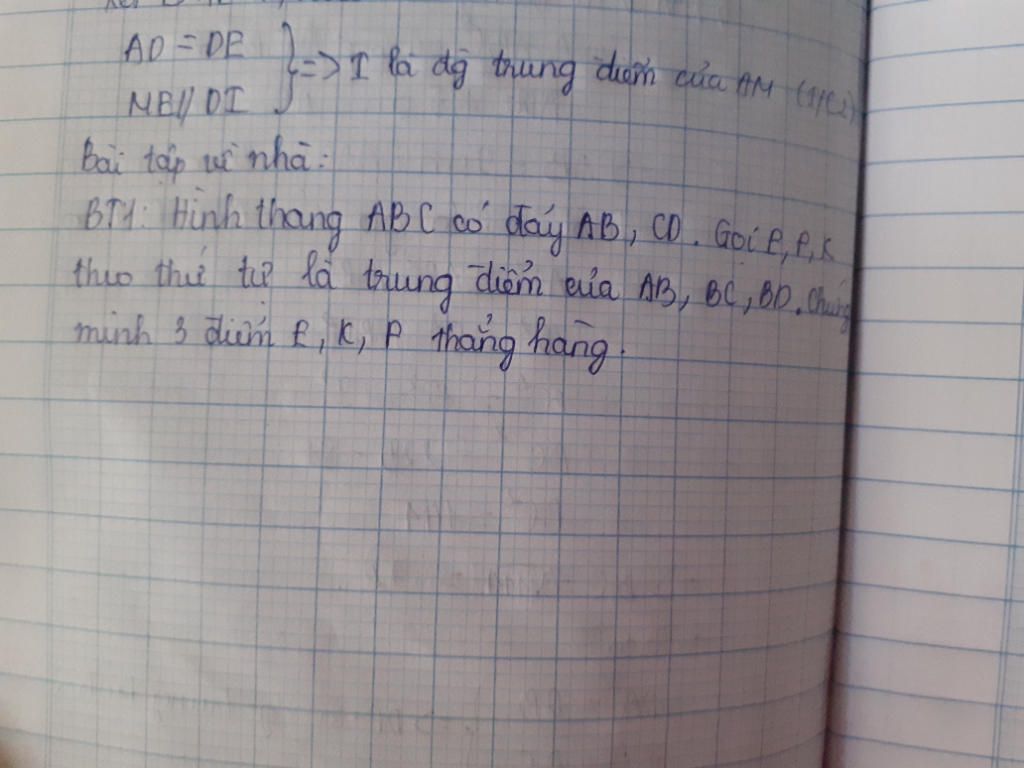 AD = DE
ME // DI } => I là đg trung điểm của AM
Bài tập về nhà:
BT1: Hình thang ABC có đáy AB, CD. Gọi E, F, K
theo thứ tự là trung điểm của AB, BC, BD. Chứng
minh 3 điểm E, K, F thẳng hàng.